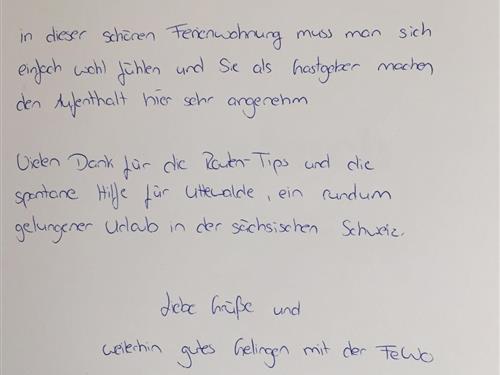 in dieser schönen Ferienwohnung muss man sich
einfach wohl fühlen und Sie als Gastgeber machen
den Aufenthalt hier sehr angenehm
Vielen Dank für die Routen-Tips und die
spontane Hilfe für Uttewalde, ein rundum
gelungener Urlaub in der sächsischen Schweiz.
Liebe Grüße und
weiterhin gutes Gelingen mit der FeWo